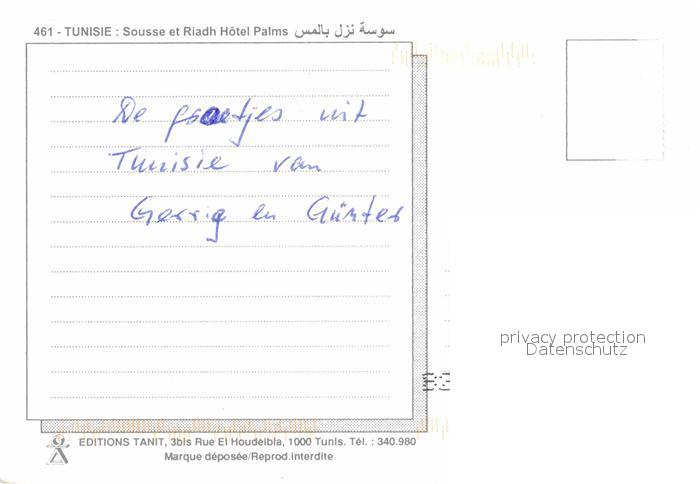 461 - TUNISIE : Sousse et Riadh Hôtel Palms سوسة نزل بالمس
De groetjes uit
Tunisie van
Gerrig en Günter
privacy protection
Datenschutz
EDITIONS TANIT, 3bis Rue El Houdeibia, 1000 Tunis. Tél. : 340.980
Marque déposée/Reprod.interdite